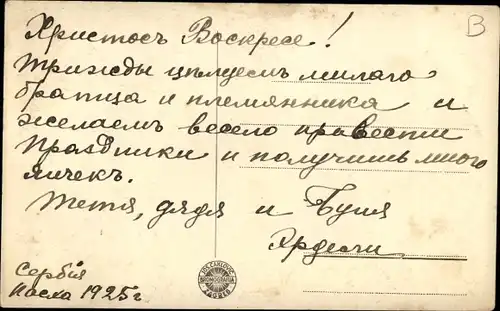 Христосъ Воскресе!
В
Трижды цѣлуемъ милаго
братца и племянника и
желаемъ весело провести
праздники и получишь много
яичек.
Тетя, дядя и Буля
Ярдели
Сербiя
Пасха 1925 г
JOS. ČAKLOVIĆ
ZAGREB